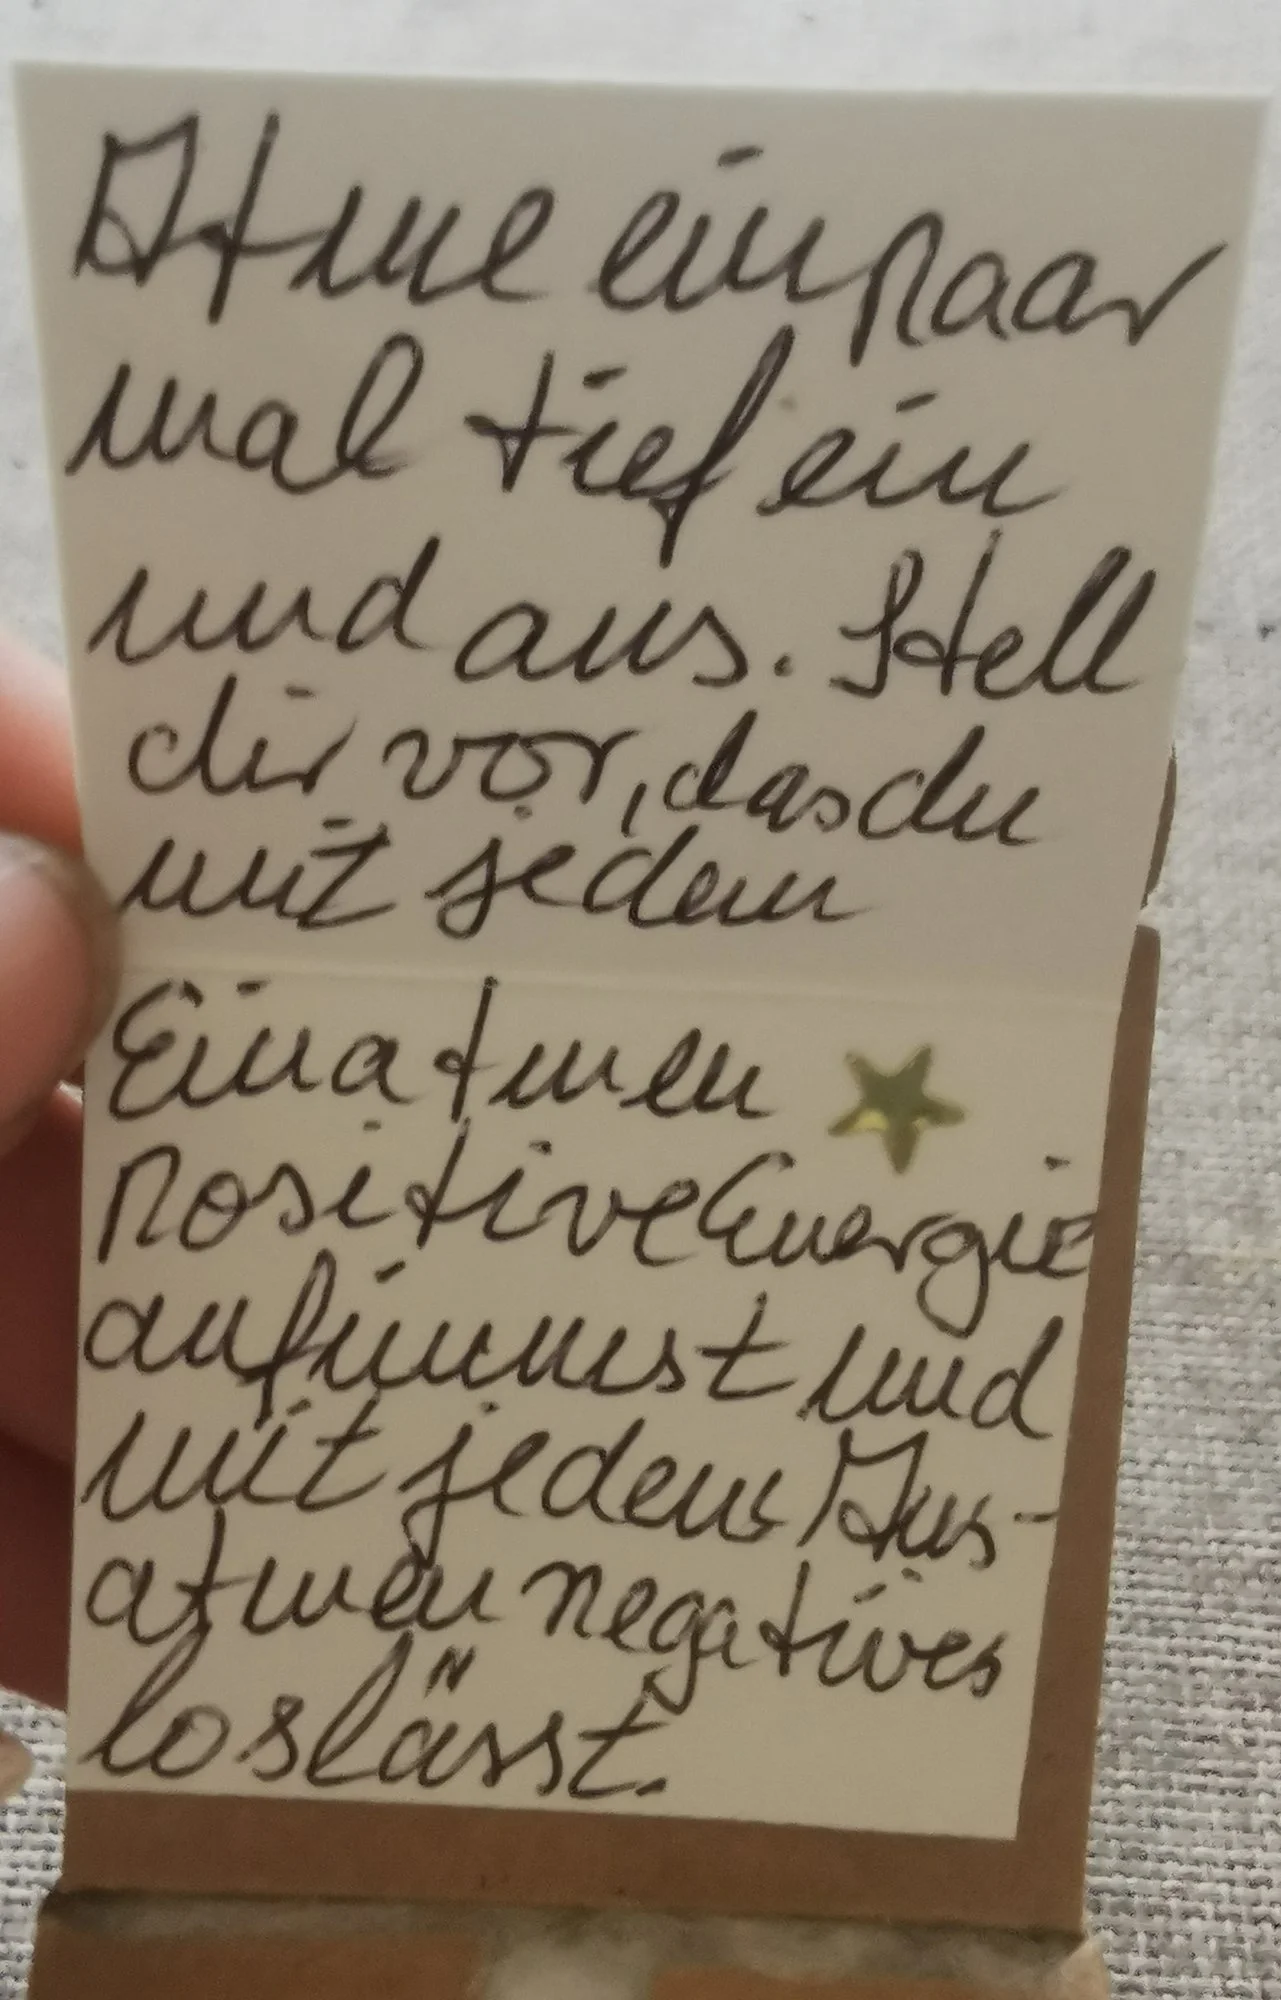 Atme ein paar
mal tief ein
und aus. Stell
dir vor, das du
mit jedem
Einatmen
positive Energie
aufnimmst und
mit jedem Aus-
atmen negatives
loslässt.